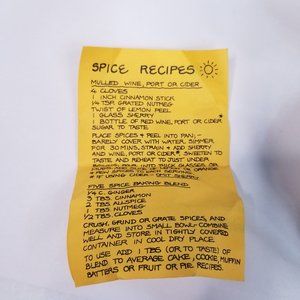 SPICE RECIPES
MULLED WINE, PORT OR CIDER
4 CLOVES
1 INCH CINNAMON STICK
1/4 TSP. GRATED NUTMEG
TWIST OF LEMON PEEL
1 GLASS SHERRY *
1 BOTTLE OF RED WINE, PORT OR CIDER
SUGAR TO TASTE
PLACE SPICES + PEEL INTO PAN;-
BARELY COVER WITH WATER, SIMMER
FOR 30 MINS, STRAIN + ADD SHERRY
AND WINE, PORT OR CIDER*. SWEETEN TO
TASTE AND REHEAT TO JUST UNDER
BOILING. POUR INTO THICK GLASS OR
ORANGE
+ FEW SPICES TO EACH SERVING.
* IF USING CIDER OMIT SHERRY
FIVE SPICE BAKING BLEND
1/4 C. GINGER
3 TBS. CINNAMON
2 TBS. ALLSPICE
1 TBS. NUTMEG
1/2 TBS. CLOVES
CRUSH, GRIND OR GRATE SPICES, AND
MEASURE INTO SMALL BOWL. COMBINE
WELL AND STORE IN TIGHTLY COVERED
CONTAINER IN COOL DRY PLACE
TO USE ADD 1 TBS (OR TO TASTE) OF
BLEND TO AVERAGE CAKE, COOKIE, MUFFIN
BATTERS OR FRUIT OR PIE RECIPES.